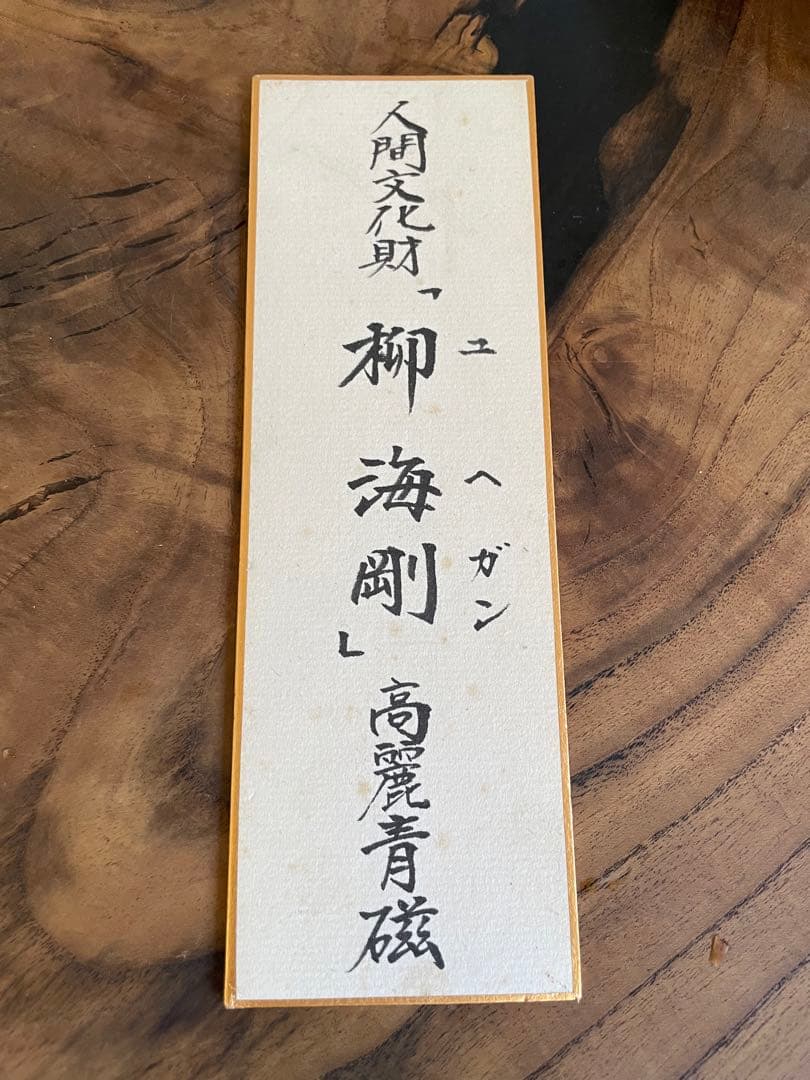 人間文化財「柳海剛」高麗青磁
ユヘガン